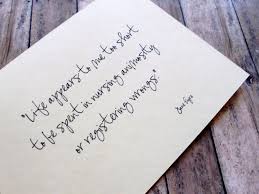 "Life appears to me too short
to be spent in nursing animosity
or registering wrongs."
Jane Eyre